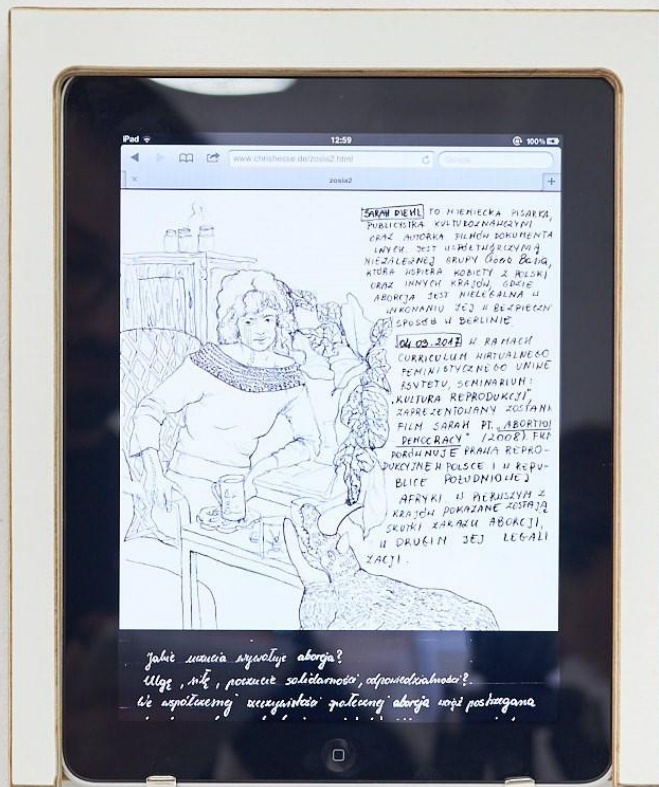 iPad
12:59
100%
www.chrishesse.de/zosia2.html
Google
zosia2
SARAH DIEHL TO NIEMIECKA PISARKA,
PUBLICYSTKA KULTUROZNAWCZYNI
ORAZ AUTORKA FILMÓW DOKUMENTA
LNYCH. JEST WSPÓŁTWÓRCZYNIĄ
NIEZALEŻNEJ GRUPY Ciocia Basia,
KTÓRA WSPIERA KOBIETY Z POLSKI
ORAZ INNYCH KRAJÓW, GDZIE
ABORCJA JEST NIELEGALNA W
WKONANIU JEJ W BEZPIECZN
SPOSÓB W BERLINIE
04.03.2017 W RAMACH
CURRICULUM WIRTUALNEGO
FEMINISTYCZNEGO UNIWE
RSYTETU, SEMINARIUM:
"KULTURA REPRODUKCJI",
ZAPREZENTOWANY ZOSTANI
FILM SARAH PT. "ABORTION
DEMOCRACY" (2008). FILM
PORÓWNUJE PRAWA REPRO-
DUKCYJNE W POLSCE I W REPU-
BLICE POŁUDNIOWEJ
AFRYKI W PIERWSZYM Z
KRAJÓW POKAZANE ZOSTAJĄ
SKUTKI ZAKAZU ABORCJI,
W DRUGIM JEJ LEGALI
ZACJI.
Jakie uczucia wywołuje aborcja?
Ulgę, siłę, poczucie solidarności, odpowiedzialności?
We współczesnej rzeczywistości społecznej aborcja wciąż postrzegana